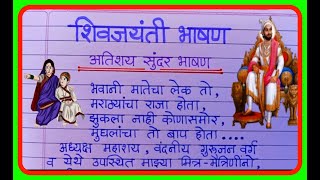 शिवजयंती भाषण
अतिशय सुंदर भाषण
भवानी मातेचा लेक तो,
मराठ्यांचा राजा होता,
झुकला नाही कोणासमोर,
मुघलांचा तो बाप होता....
अध्यक्ष महाशय, वंदनीय गुरुजन वर्ग
व येथे उपस्थित माझ्या मित्र-मैत्रिणीनो,